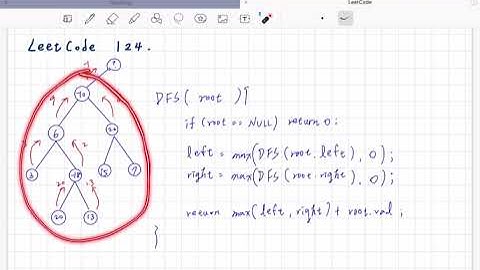 LeetCode
LeetCode 124.
DFS( root ){
if (root == NULL) return 0;
left = max(DFS(root.left), 0);
right = max(DFS(root.right), 0);
return max(left, right) + root.val;
}
6
20
15
7
20
13